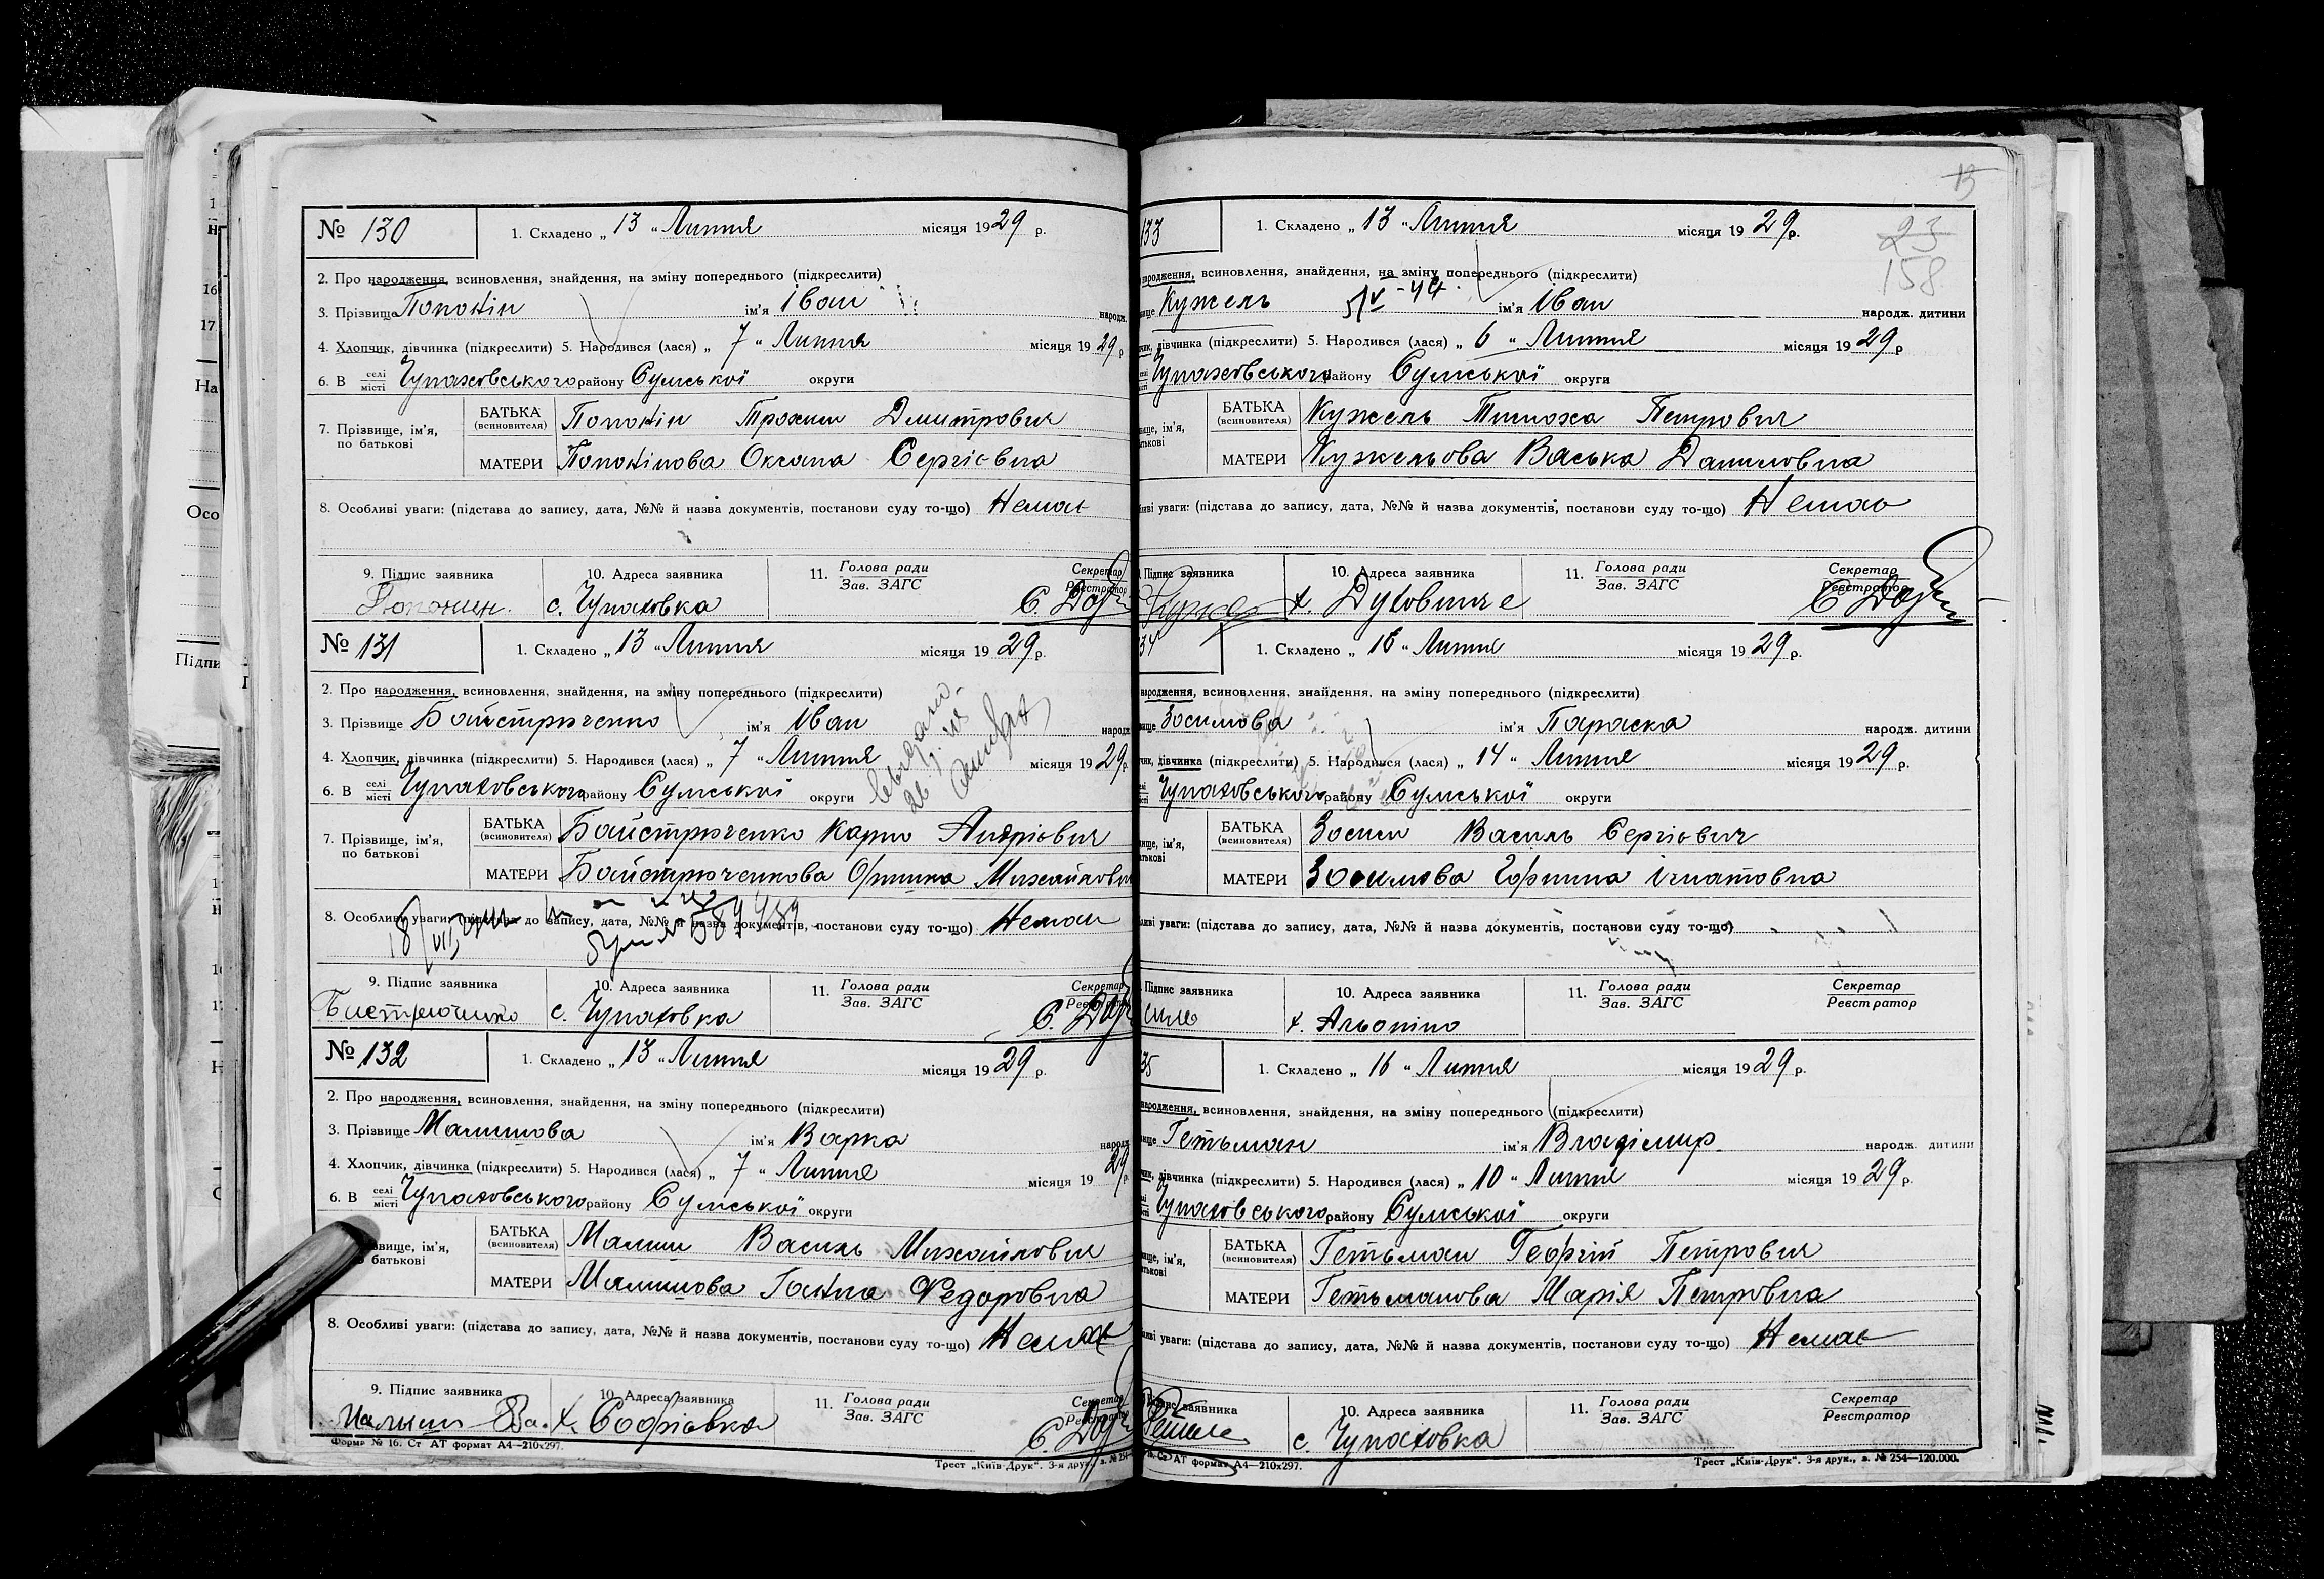 № 130
1. Складено „ 13 “ Липня місяця 1929 р.
2. Про народження, всиновлення, знайдення, на зміну попереднього (підкреслити)
3. Прізвище Попонін ім'я Іван народж.
4. Хлопчик, дівчинка (підкреслити) 5. Народився (лася) „ 7 “ Липня місяця 1929 р
6. В селі місті Чупаховського району Сумської округи
7. Прізвище, ім'я, по батькові
БАТЬКА (всиновителя) Попонін Трохим Дмитрович
МАТЕРИ Попонінова Оксана Сергієвна
8. Особливі уваги: (підстава до запису, дата, №№ й назва документів, постанови суду то-що) Немає
9. Підпис заявника 10. Адреса заявника 11. Голова ради Зав. ЗАГС Секретар Реєстратор
Попонин. с. Чупаховка
№ 131
1. Складено „ 13 “ Липня місяця 1929 р.
2. Про народження, всиновлення, знайдення, на зміну попереднього (підкреслити)
3. Прізвище Байстрюченко ім'я Іван народж
4. Хлопчик, дівчинка (підкреслити) 5. Народився (лася) „ 7 “ Липня місяця 1929 р.
6. В селі місті Чупаховського району Сумської округи
7. Прізвище, ім'я, по батькові
БАТЬКА (всиновителя) Байстрюченко Карпо Андрієвич
МАТЕРИ Байстрюченкова Оришка Михайловн
8. Особливі уваги: (підстава до запису, дата, №№ й назва документів, постанови суду то-що) Немає
9. Підпис заявника 10. Адреса заявника 11. Голова ради Зав. ЗАГС Секретар Реєстр
с. Чупаховка
№ 132
1. Складено „ 13 “ Липня місяця 1929 р.
2. Про народження, всиновлення, знайдення, на зміну попереднього (підкреслити)
3. Прізвище Малишова ім'я Варка народж
4. Хлопчик, дівчинка (підкреслити) 5. Народився (лася) „ 7 “ Липня місяця 1929 р.
6. В селі місті Чупаховського району Сумської округи
звище, ім'я, батькові
БАТЬКА (всиновителя) Малиш Василь Михайлович
МАТЕРИ Малишова Ганна Федоровна
8. Особливі уваги: (підстава до запису, дата, №№ й назва документів, постанови суду то-що) Немає
9. Підпис заявника 10. Адреса заявника 11. Голова ради Зав. ЗАГС Секретар
Малиш Ва. х. Софіевка
Форма № 16. Ст АТ формат А4—210x297.
Трест „Київ-Друк“. 3-я друк., з. № 254
13
23
158
133
1. Складено „ 13 “ Липня місяця 1929 р.
народження, всиновлення, знайдення, на зміну попереднього (підкреслити)
ище Кужель ім'я Іван народж. дитини
чик, дівчинка (підкреслити) 5. Народився (лася) „ 6 “ Липня місяця 1929 р
Чупаховського району Сумської округи
вище, ім'я, атькові
БАТЬКА (всиновителя) Кужель Тимоха Петрович
МАТЕРИ Кужельова Васька Даниловна
ливі уваги: (підстава до запису, дата, №№ й назва документів, постанови суду то-що) Немає
Підпис заявника 10. Адреса заявника 11. Голова ради Зав. ЗАГС Секретар Реєстратор
34
1. Складено „ 16 “ Липня місяця 1929 р.
народження, всиновлення, знайдення, на зміну попереднього (підкреслити)
вище Зосимова ім'я Параска народж. дитини
чик, дівчинка (підкреслити) 5. Народився (лася) „ 14 “ Липня місяця 1929 р.
Чупаховського району Сумської округи
вище, ім'я, атькові
БАТЬКА (всиновителя) Зосим Василь Сергієвич
МАТЕРИ Зосимова Горпина Ігнатовна
ливі уваги: (підстава до запису, дата, №№ й назва документів, постанови суду то-що)
Підпис заявника 10. Адреса заявника 11. Голова ради Зав. ЗАГС Секретар Реєстратор
35
1. Складено „ 16 “ Липня місяця 1929 р.
народження, всиновлення, знайдення, на зміну попереднього (підкреслити)
вище Гетьман ім'я Владімир народж. дитини
дівчинка (підкреслити) 5. Народився (лася) „ 10 “ Липня місяця 1929 р.
Чупаховського району Сумської округи
вище, ім'я, атькові
БАТЬКА (всиновителя) Гетьман Георгій Петрович
МАТЕРИ Гетьманова Марія Петровна
ливі уваги: (підстава до запису, дата, №№ й назва документів, постанови суду то-що) Немає
заявника 10. Адреса заявника 11. Голова ради Зав. ЗАГС Секретар Реєстратор
с Чупаховка
Ст АТ формат А4—210x297.
Трест „Київ-Друк“. 3-я друк., з. № 254—120.000.